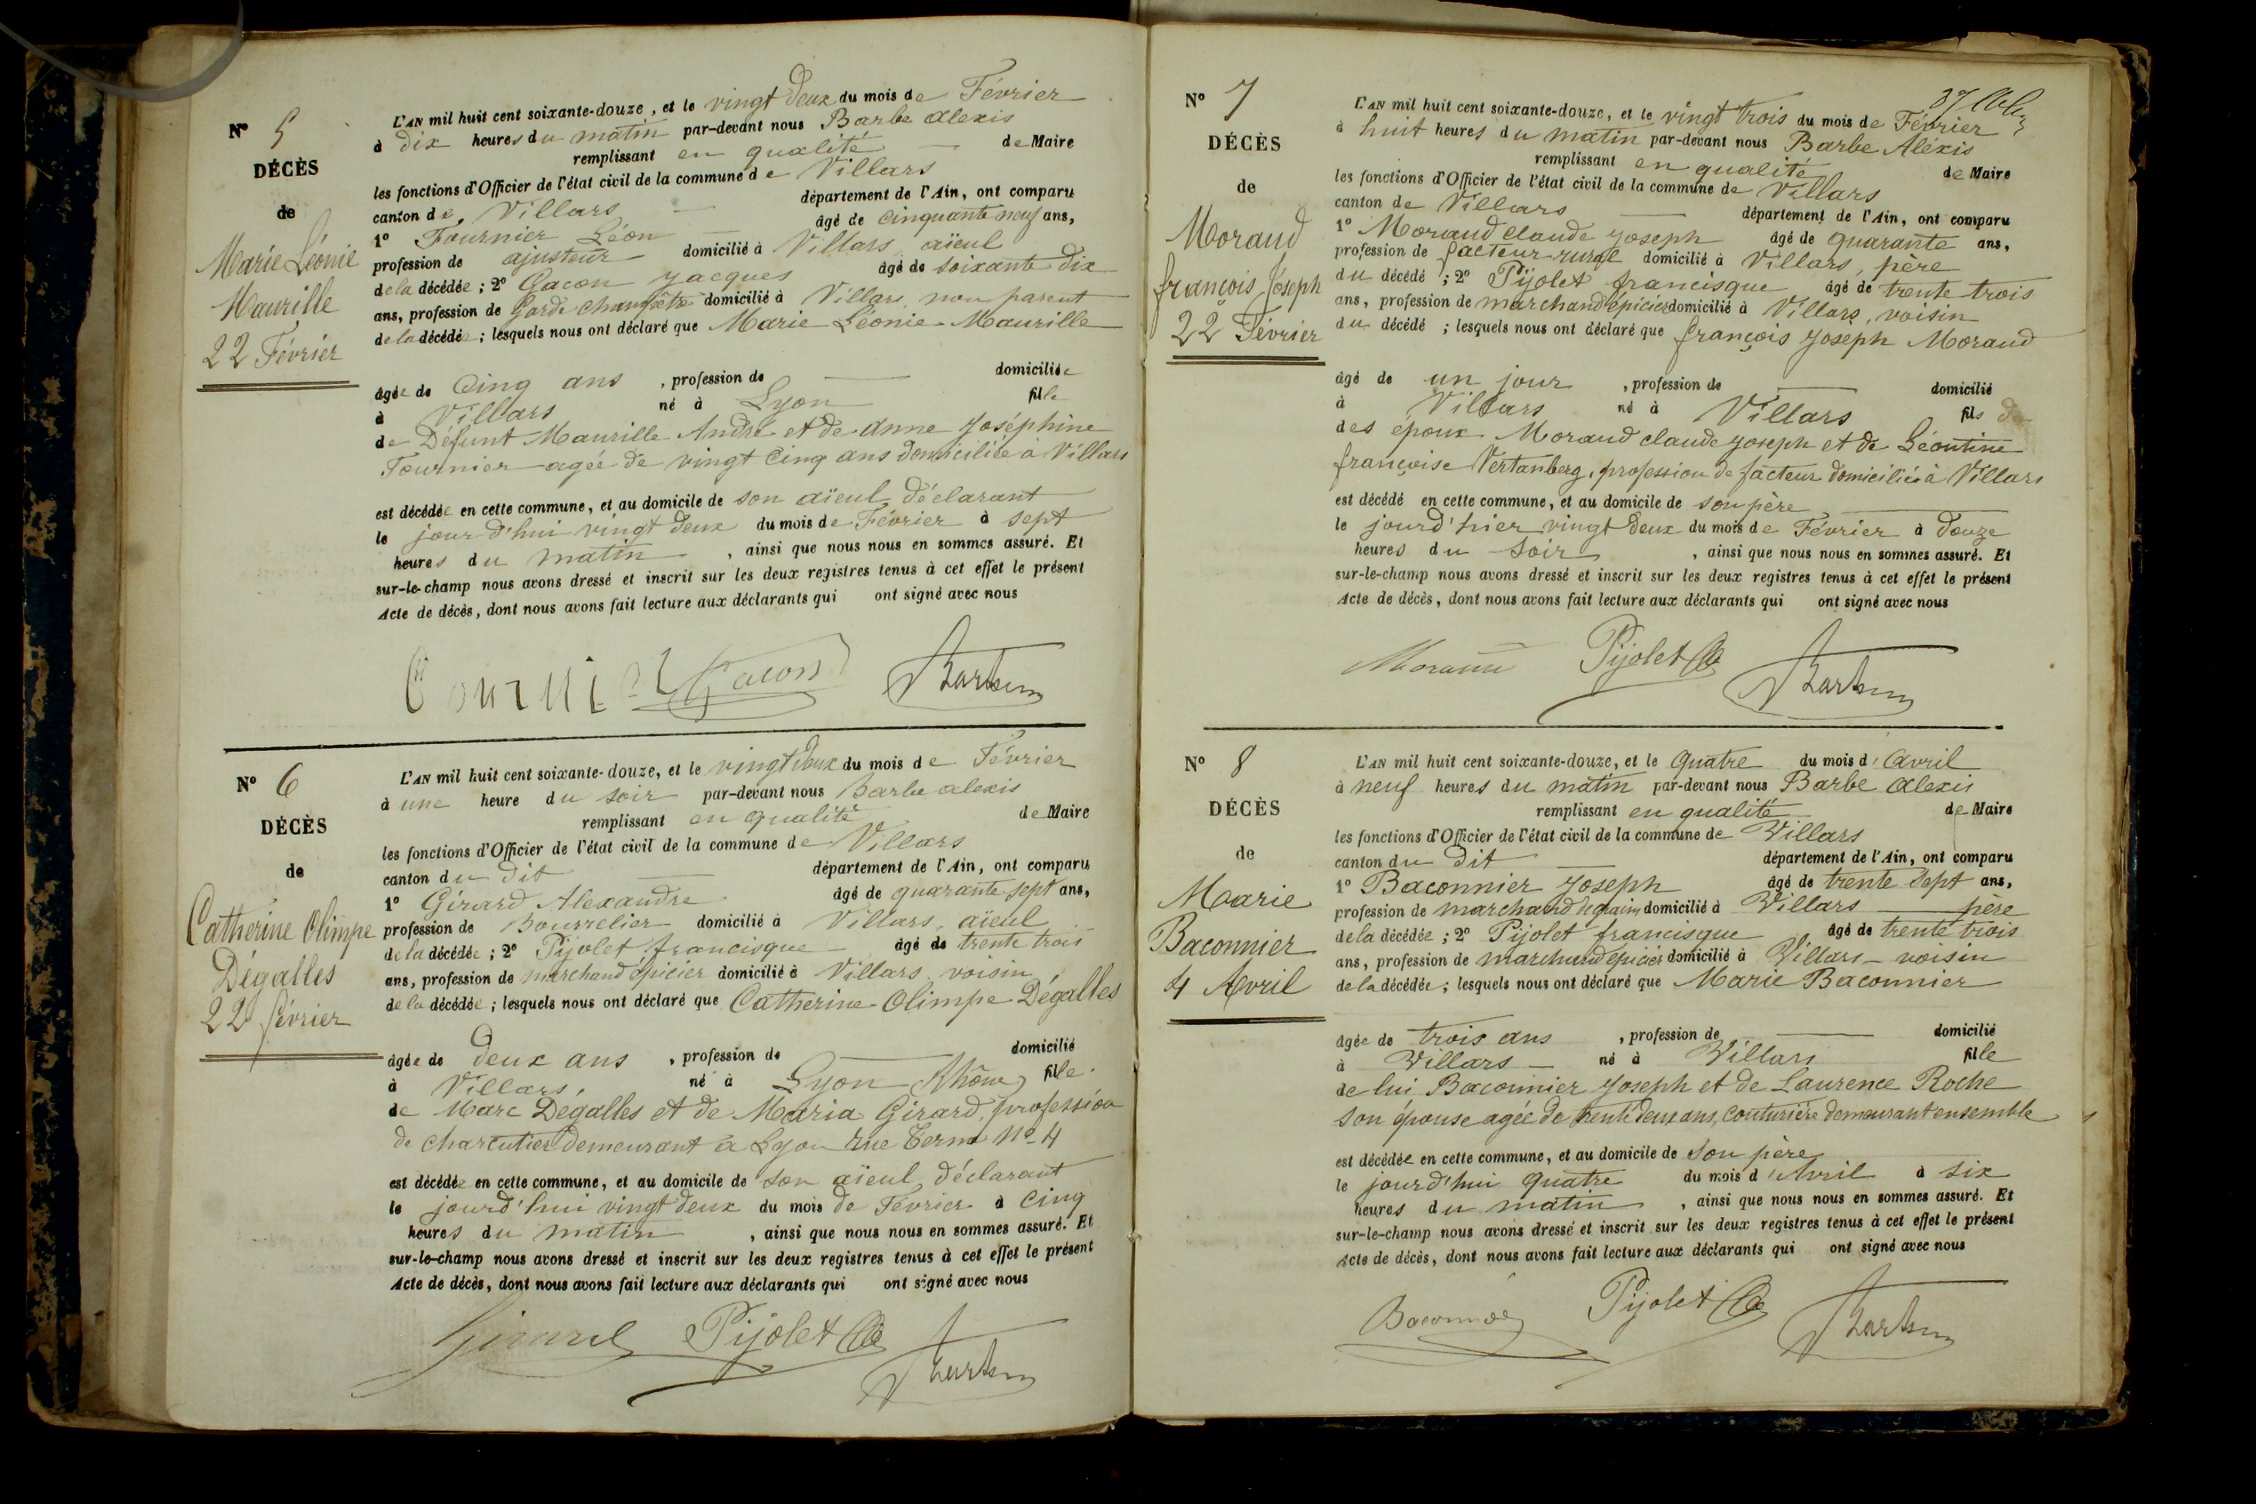 N° 5
DÉCÈS
de
Marie Léonie
Maurille
22 Février
L'AN mil huit cent soixante-douze, et le vingt deux du mois de Février
à dix heures du matin par-devant nous Barbe Alexis
remplissant en qualité de Maire
les fonctions d'Officier de l'état civil de la commune de Villars
canton de Villars département de l'Ain, ont comparu
1° Fournier Léon âgé de cinquante neuf ans,
profession de ajusteur domicilié à Villars aïeul
de la décédée ; 2° Gacon Jacques âgé de soixante dix
ans, profession de Garde champêtre domicilié à Villars non parent
de la décédée ; lesquels nous ont déclaré que Marie Léonie Maurille
âgée de Cinq ans , profession de domiciliée
à Villars né à Lyon fille
de Défunt Maurille André et de Anne Joséphine
Fournier agée de vingt Cinq ans domiciliée à Villars
est décédée en cette commune, et au domicile de son aïeul déclarant
le jour d'hui vingt deux du mois de Février à sept
heures du matin , ainsi que nous nous en sommes assuré. Et
sur-le-champ nous avons dressé et inscrit sur les deux registres tenus à cet effet le présent
Acte de décès, dont nous avons fait lecture aux déclarants qui ont signé avec nous
Fournier Gacon
N° 6
DÉCÈS
de
Catherine Olimpe
Dégalles
22 février
L'AN mil huit cent soixante-douze, et le vingt deux du mois de Février
à une heure du soir par-devant nous Barbe alexis
remplissant en qualité de Maire
les fonctions d'Officier de l'état civil de la commune de Villars
canton du dit département de l'Ain, ont comparu
1° Girard Alexandre âgé de quarante sept ans,
profession de Bourrelier domicilié à Villars, aïeul
de la décédée ; 2° Pijolet francisque âgé de trente trois
ans, profession de marchand épicier domicilié à Villars voisin
de la décédée ; lesquels nous ont déclaré que Catherine Olimpe Dégalles
âgée de deux ans , profession de domicilié
à Villars. né à Lyon Rhône fille
de Marc Dégalles et de Maria Girard, profession
de charcutier demeurant à Lyon rue Terme No 4
est décédée en cette commune, et au domicile de son aïeul déclarant
le jourd'hui vingt deux du mois de Février à Cinq
heures du matin , ainsi que nous nous en sommes assuré. Et
sur-le-champ nous avons dressé et inscrit sur les deux registres tenus à cet effet le présent
Acte de décès, dont nous avons fait lecture aux déclarants qui ont signé avec nous
Girard Pijolet
37
N° 7
DÉCÈS
de
Moraud
françois Joseph
22 Février
L'AN mil huit cent soixante-douze, et le vingt trois du mois de Février
à huit heures du matin par-devant nous Barbe Alexis
remplissant en qualité de Maire
les fonctions d'Officier de l'état civil de la commune de Villars
canton de Villars département de l'Ain, ont comparu
1° Moraud claude Joseph âgé de quarante ans,
profession de facteur rural domicilié à Villars, père
du décédé ; 2° Pijolet francisque âgé de trente trois
ans, profession de marchand épicier domicilié à Villars, voisin
du décédé ; lesquels nous ont déclaré que françois Joseph Moraud
âgé de un jour , profession de domicilié
à Villars né à Villars fils de
des époux Moraud claude Joseph et de Léontine
françoise Vertanberg, profession de facteur domiciliés à Villars
est décédé en cette commune, et au domicile de son père
le jourd'hier vingt deux du mois de Février à douze
heures du soir , ainsi que nous nous en sommes assuré. Et
sur-le-champ nous avons dressé et inscrit sur les deux registres tenus à cet effet le présent
Acte de décès, dont nous avons fait lecture aux déclarants qui ont signé avec nous
Moraud Pijolet
N° 8
DÉCÈS
de
Marie
Baconnier
4 Avril
L'AN mil huit cent soixante-douze, et le Quatre du mois d'Avril
à neuf heures du matin par-devant nous Barbe Alexis
remplissant en qualité de Maire
les fonctions d'Officier de l'état civil de la commune de Villars
canton du dit département de l'Ain, ont comparu
1° Baconnier Joseph âgé de trente sept ans,
profession de marchand de grains domicilié à Villars père
de la décédée ; 2° Pijolet francisque âgé de trente trois
ans, profession de marchand épicier domicilié à Villars voisin
de la décédée ; lesquels nous ont déclaré que Marie Baconnier
âgée de trois ans , profession de domicilié
à Villars né à Villars fille
de lui Baconnier Joseph et de Laurence Roche
son épouse agée de trente deux ans, couturière demeurant ensemble
est décédée en cette commune, et au domicile de son père
le jourd'hui Quatre du mois d'Avril à six
heures du matin , ainsi que nous nous en sommes assuré. Et
sur-le-champ nous avons dressé et inscrit sur les deux registres tenus à cet effet le présent
Acte de décès, dont nous avons fait lecture aux déclarants qui ont signé avec nous
Baconnier Pijolet